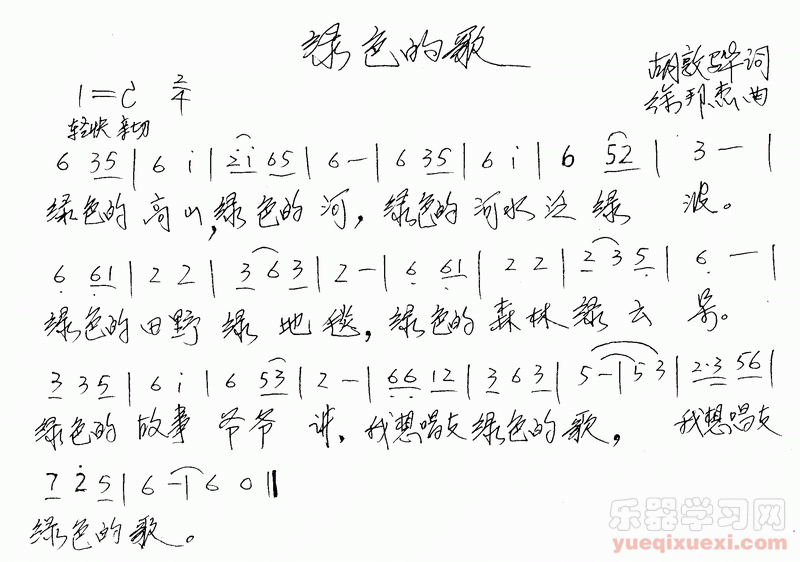 绿色的歌
1=C 2/4
胡敦骅词
徐邦杰曲
轻快 亲切
6 35 | 6 i | 2̇i 65 | 6 — | 6 35 | 6 i | 6 52 | 3 — |
绿色的高山,绿色的河,绿色的河水泛绿波。
6̣ 6̣1 | 2 2 | 3 6 3 | 2 — | 6̣ 6̣1 | 2 2 | 2 3 5̣ | 6̣ — |
绿色的田野绿地毯,绿色的森林绿云朵。
3 35 | 6 i | 6 53 | 2 — | 6̣6̣ 12 | 3 6 3 | 5 — | 5 3 | 2·3 56 |
绿色的故事爷爷讲,我想唱支绿色的歌, 我想唱支
7 2̇ 5 | 6 — | 6 0 ‖
绿色的歌。
乐器学习网
yueqixuexi.com